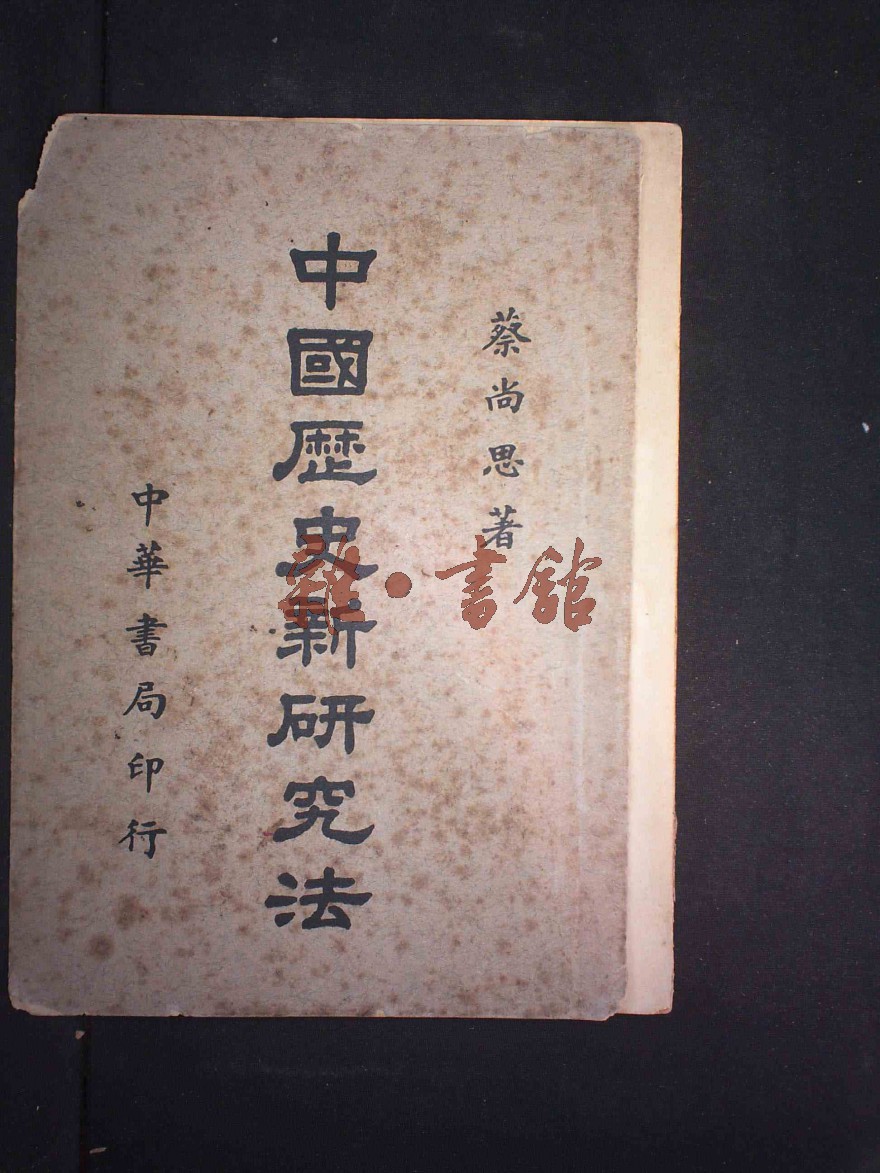 蔡尚思著
中國歷史新研究法
中華書局印行
雅·書館